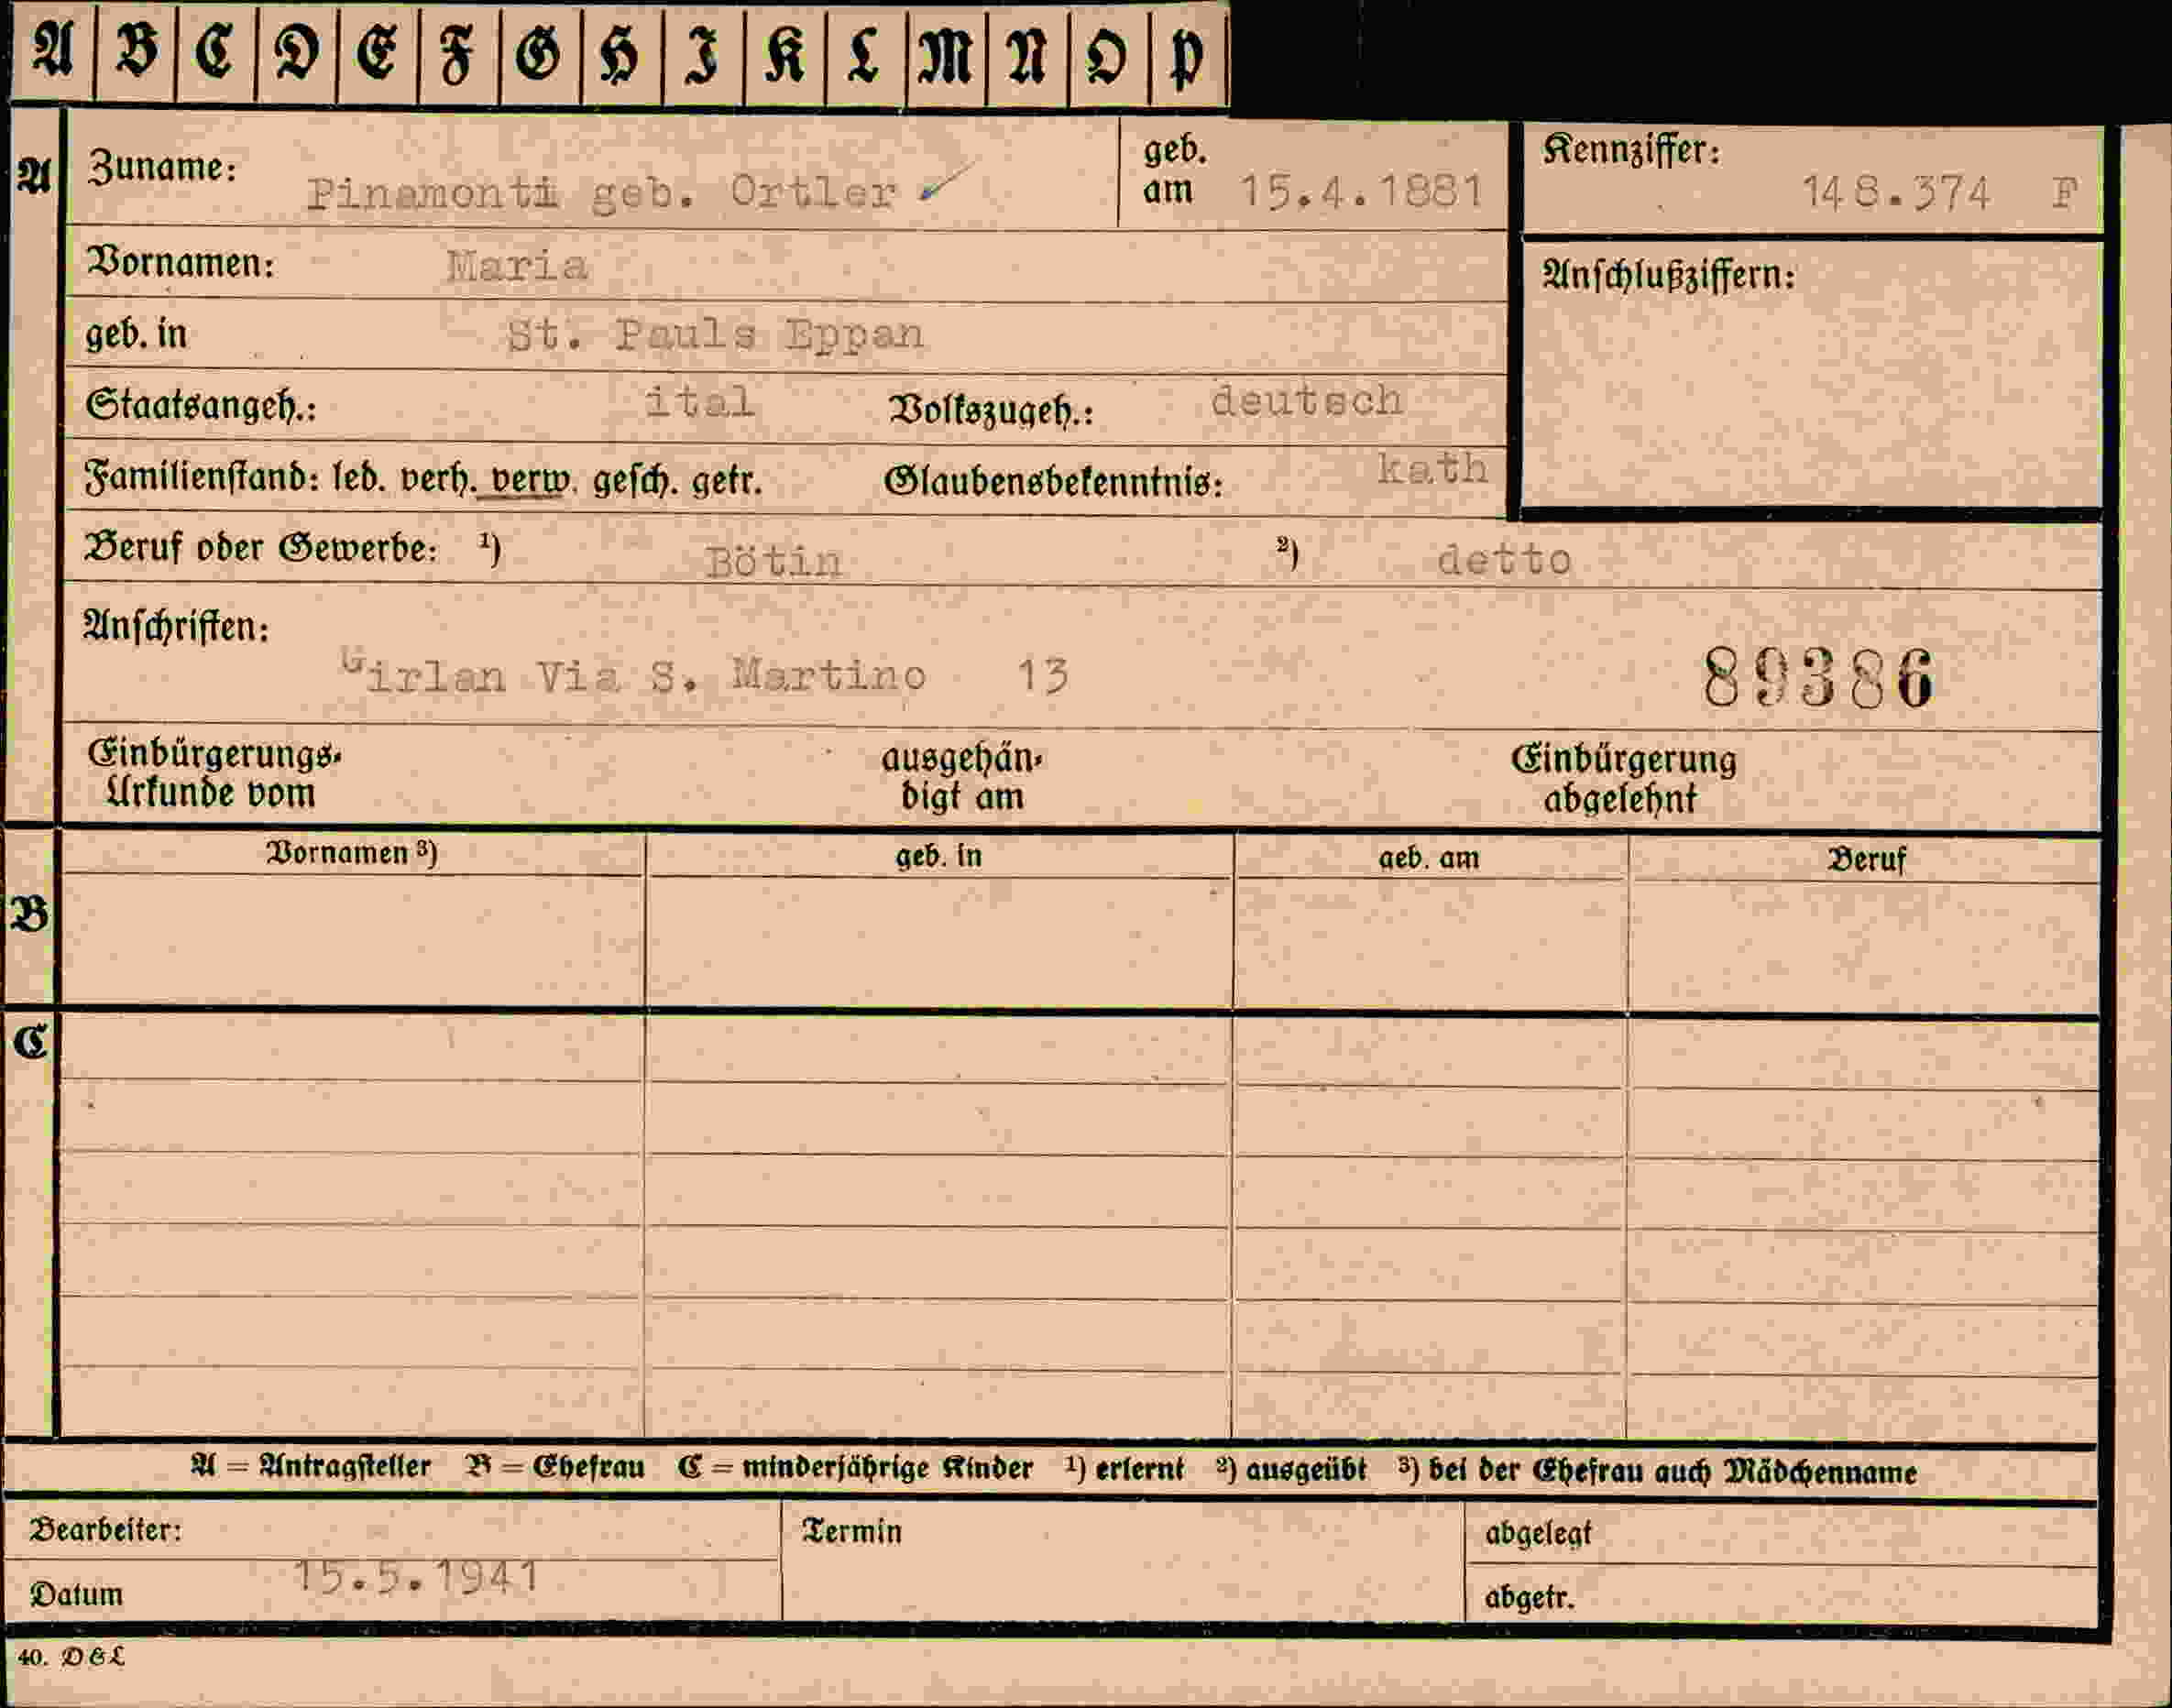 A B C D E F G H I K L M N O P
A Zuname: Pinamonti geb. Ortler ✓ geb. am 15.4.1881 Kennziffer: 148.374 F
Vornamen: Maria Anschlußziffern:
geb. in St. Pauls Eppan
Staatsangeh.: ital Volkszugeh.: deutsch
Familienstand: led. verh. verw. gesch. getr. Glaubensbekenntnis: kath
Beruf oder Gewerbe: ¹) Bötin ²) detto
Anschriften:
Girlan Via S. Martino 13 89386
Einbürgerungs- ausgehän- Einbürgerung
Urkunde vom digt am abgelehnt
Vornamen ³) geb. in geb. am Beruf
B
C
A = Antragsteller B = Ehefrau C = minderjährige Kinder ¹) erlernt ²) ausgeübt ³) bei der Ehefrau auch Mädchenname
Bearbeiter: Termin abgelegt
Datum 15.5.1941 abgetr.
40. D & L